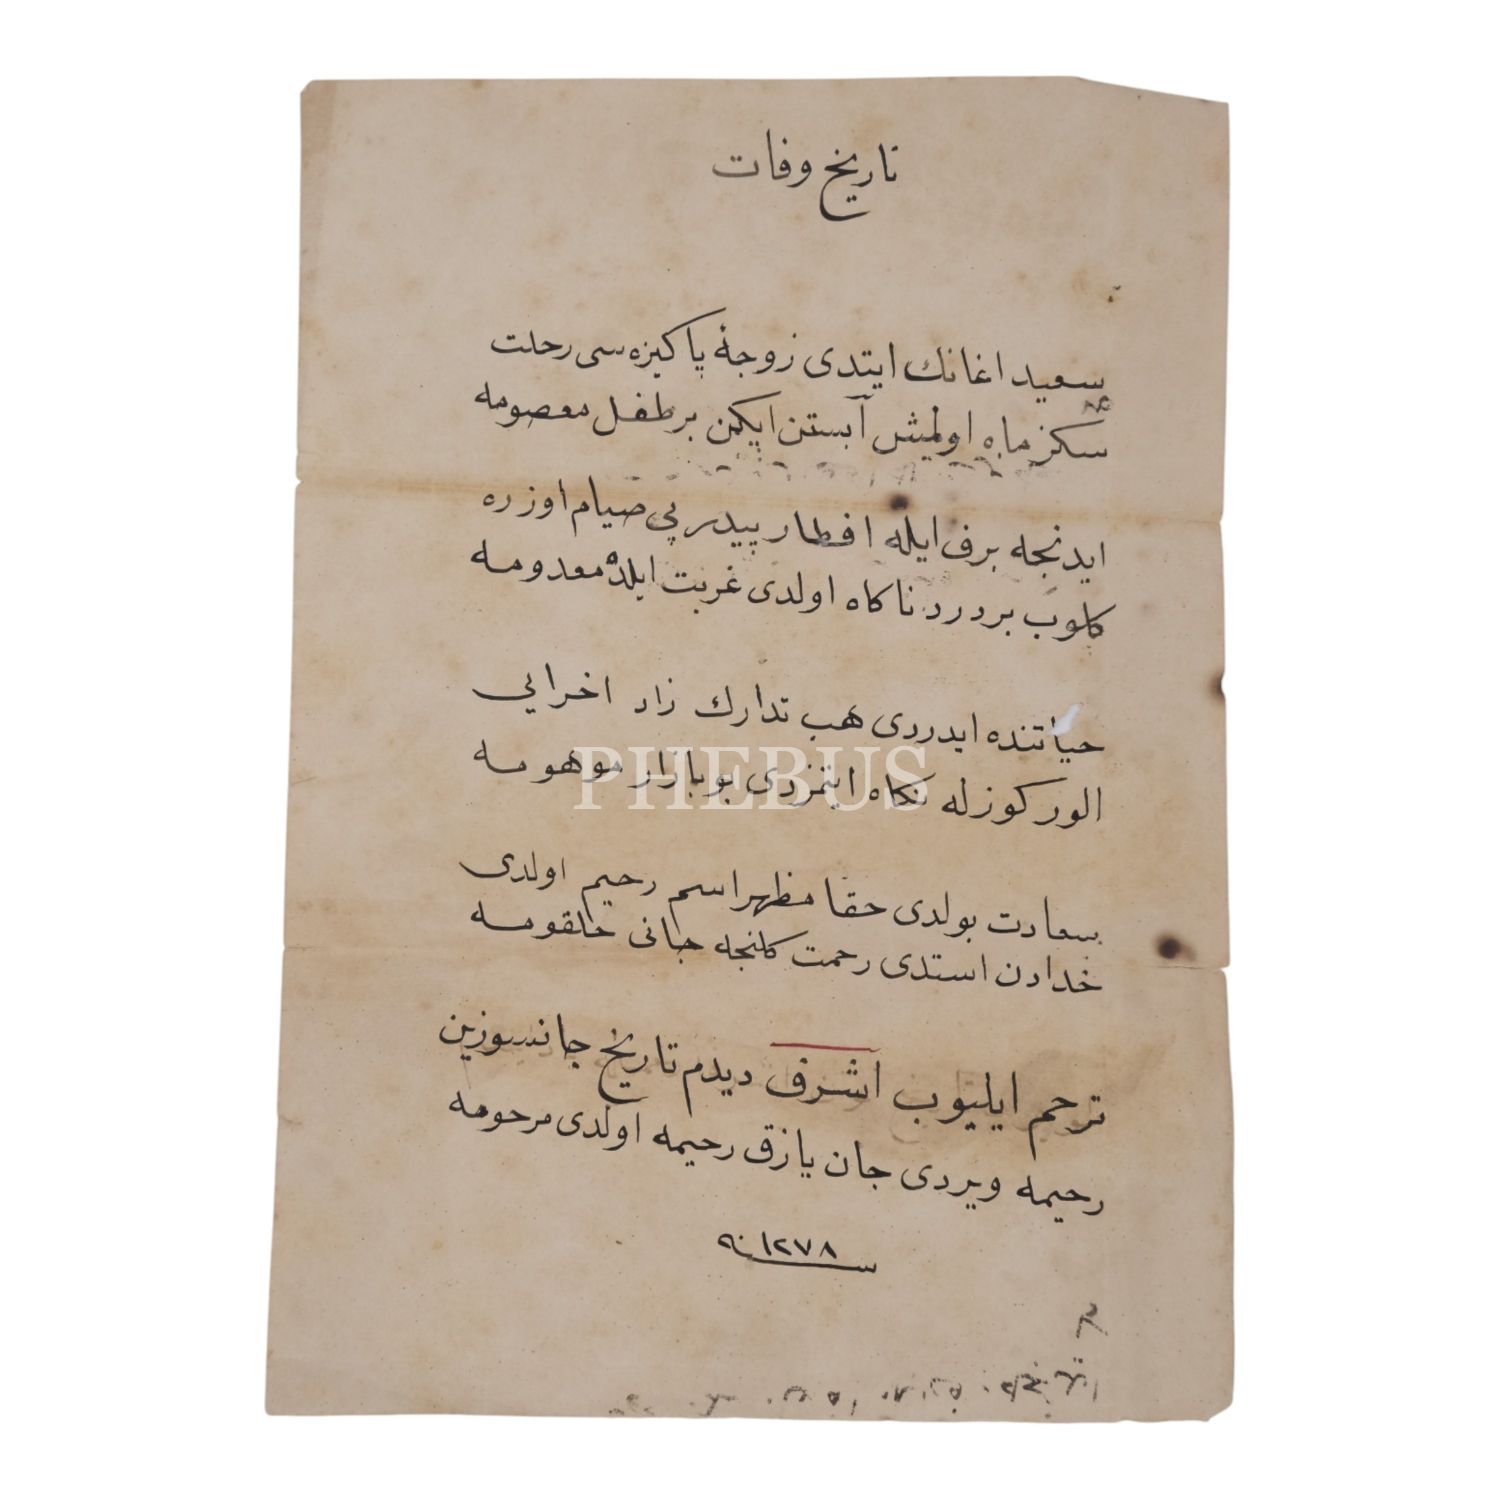 تاريخ وفات
سعيد اغانك ايتدى زوجهٔ پاكيزه سى رحلت
سكز ماه اولمش آبستن ايكن بر طفل معصومه
ايدنجه برف ايله افطار پيدرپى صيام اوزره
كلوب بر درد ناكاه اولدى غربت ايلده معدومه
حياتنده ايدردى هب تدارك زاد اخرايى
الور كوزله نكاه ايتمزدى بو بازار موهومه
سعادت بولدى حقا مظهر اسم رحيم اولدى
خدادن استدى رحمت كلنجه جانى حلقومه
ترحم ايليوب اشرف ديدم تاريخ جانسوزين
رحيمه ويردى جان يازق رحيمه اولدى مرحومه
سنه ١٢٧٨
PHEBUS